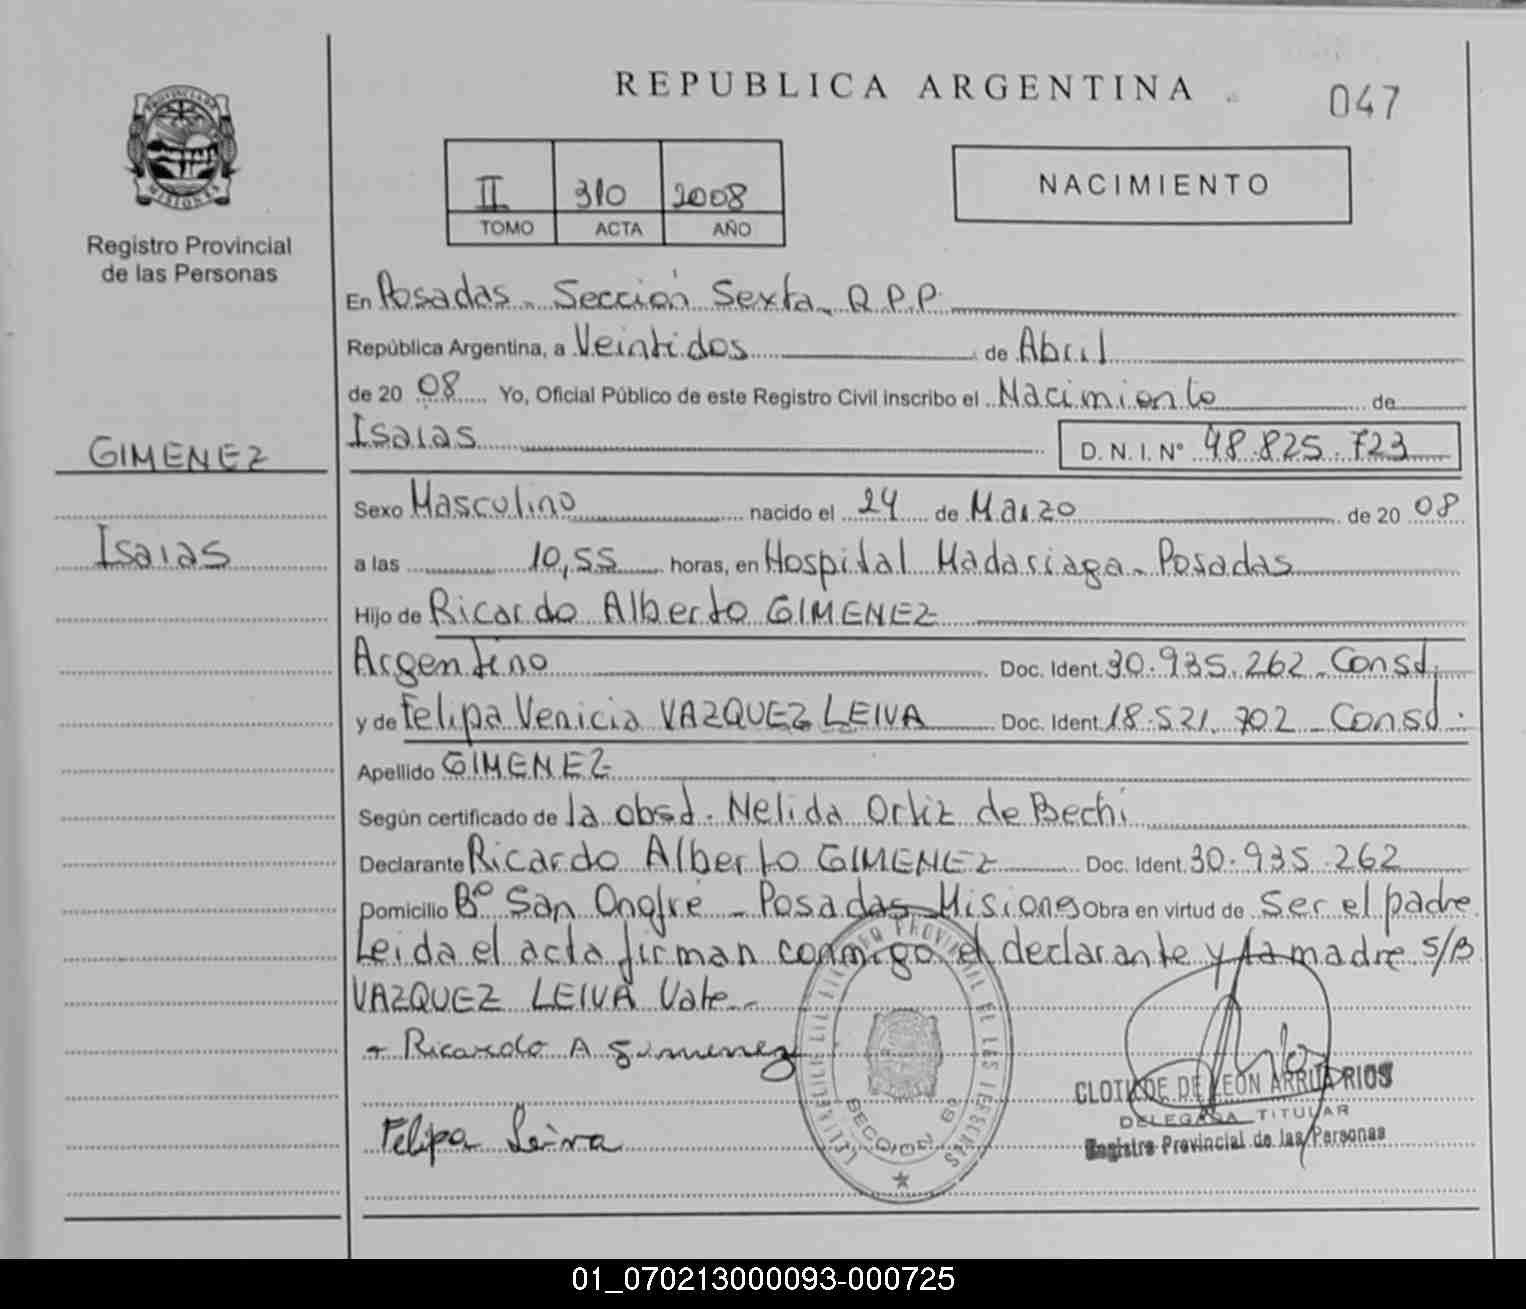 REPUBLICA ARGENTINA
047
PROVINCIA DE
MISIONES
Registro Provincial
de las Personas
II 310 2008
TOMO ACTA AÑO
NACIMIENTO
En Posadas - Sección Sexta - R.P.P.
República Argentina, a Veintidos de Abril
de 20 08 Yo, Oficial Público de este Registro Civil inscribo el Nacimiento de
Isaias D. N. I. Nº 48.825.723
GIMENEZ
Isaias
Sexo Masculino nacido el 24 de Marzo de 20 08
a las 10,55 horas, en Hospital Madariaga - Posadas
Hijo de Ricardo Alberto GIMENEZ
Argentino Doc. Ident. 30.935.262 - Consd.
y de Felipa Venicia VAZQUEZ LEIVA Doc. Ident. 18.521.702 - Consd.
Apellido GIMENEZ
Según certificado de la obsd. Nelida Ortiz de Bechi
Declarante Ricardo Alberto GIMENEZ Doc. Ident. 30.935.262
Domicilio Bº San Onofre - Posadas - Misiones Obra en virtud de Ser el padre
Leida el acta firman conmigo el declarante y la madre S/B
VAZQUEZ LEIVA Vale -
Ricardo A Gimenez
Felipa Leiva
SECCION 6ª
CLOTILDE DE LEON ARRUA RIOS
DELEGADA TITULAR
Registro Provincial de las Personas
01_070213000093-000725